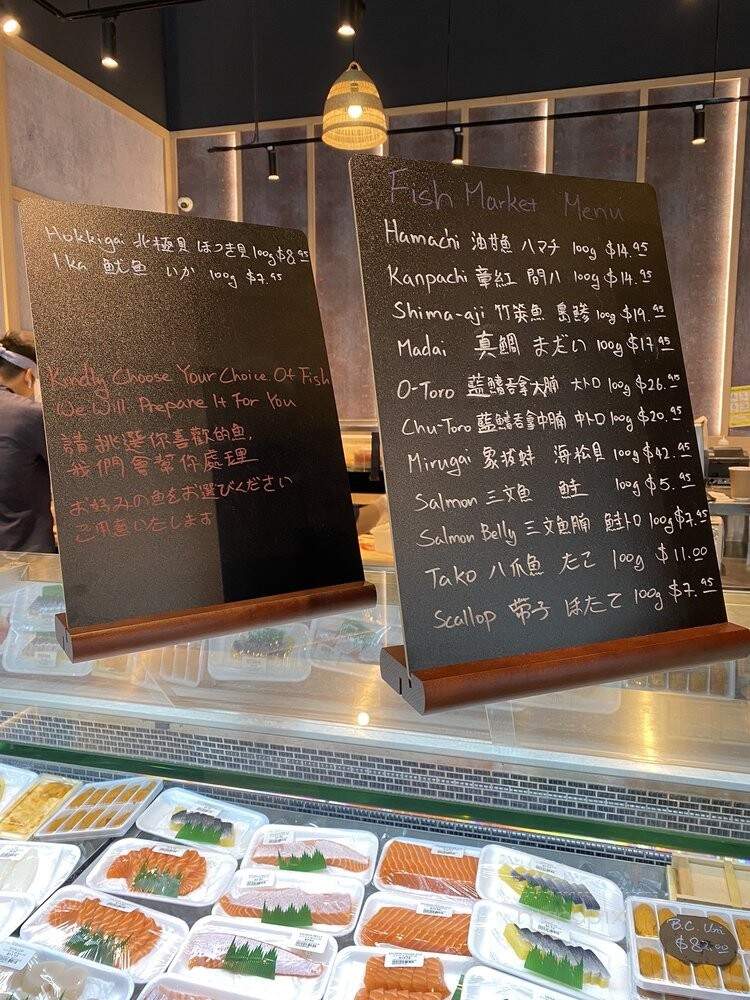 Hokkigai 北極貝 ほっき貝 100g $8.95
Ika 魷魚 いか 100g $7.95
Kindly Choose Your Choice Of Fish
We Will Prepare It For You
請挑選你喜歡的魚,
我們會幫你處理
お好みの魚をお選びください
ご用意いたします
Fish Market Menu
Hamachi 油甘魚 ハマチ 100g $14.95
Kanpachi 章紅 間八 100g $14.95
Shima-aji 竹筴魚 島鯵 100g $19.95
Madai 真鯛 まだい 100g $17.95
O-Toro 藍鰭吞拿大腩 大トロ 100g $26.95
Chu-Toro 藍鰭吞拿中腩 中トロ 100g $20.95
Mirugai 象拔蚌 海松貝 100g $42.95
Salmon 三文魚 鮭 100g $5.95
Salmon Belly 三文魚腩 鮭トロ 100g $7.95
Tako 八爪魚 たこ 100g $11.00
Scallop 帶子 ほたて 100g $7.95
B.C. Uni